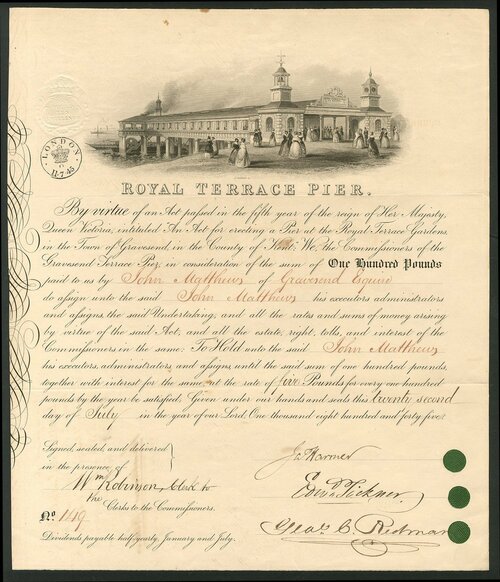 LONDON
11-7-45
ROYAL TERRACE PIER.
By virtue of an Act passed in the fifth year of the reign of Her Majesty,
Queen Victoria, intituled An Act for erecting a Pier at the Royal Terrace Gardens,
in the Town of Gravesend, in the County of Kent: We, the Commissioners of the
Gravesend Terrace Pier, in consideration of the sum of One Hundred Pounds
paid to us by John Matthews of Gravesend Esquire
do assign unto the said John Matthews his executors, administrators
and assigns, the said Undertaking, and all the rates and sums of money arising
by virtue of the said Act, and all the estate, right, tolls, and interest of the
Commissioners in the same: To Hold unto the said John Matthews
his executors, administrators, and assigns, until the said sum of one hundred pounds,
together with interest for the same, at the rate of five Pounds for every one hundred
pounds by the year be satisfied. Given under our hands and seals this twenty second
day of July in the year of our Lord, One thousand eight hundred and forty five.
Signed, sealed, and delivered
in the presence of
Wm Robinson, Clerk to
the Clerks to the Commissioners.
No. 149
Dividends payable half-yearly, January and July.
Ja Harmer
Edwd Tickner
Geo. C. Redman